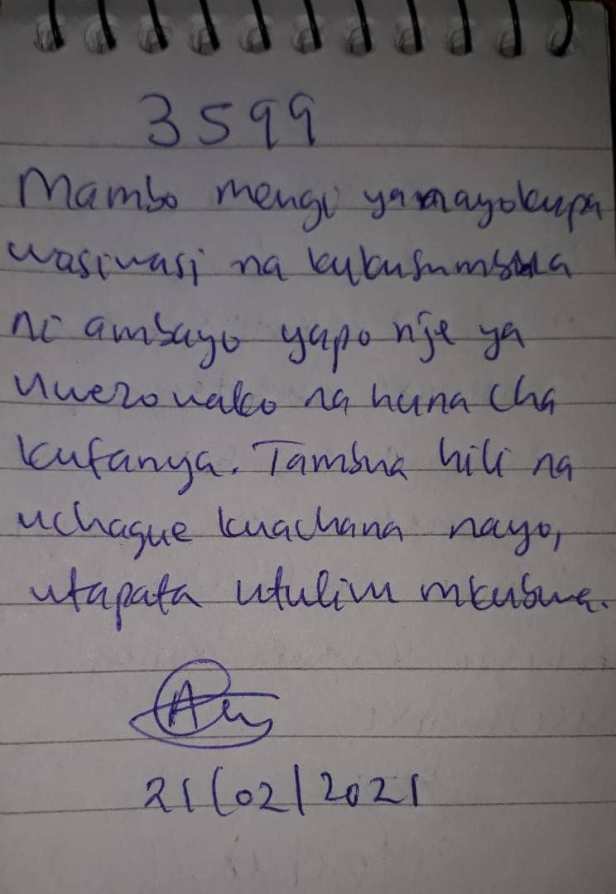 3599
Mambo mengi yamayokupa
wasiwasi na kukusumbua
ni ambayo yapo nje ya
uwezo wako na huna cha
kufanya. Tambua hili na
uchague kuachana nayo,
utapata utulivu mkubwa.
21/02/2021